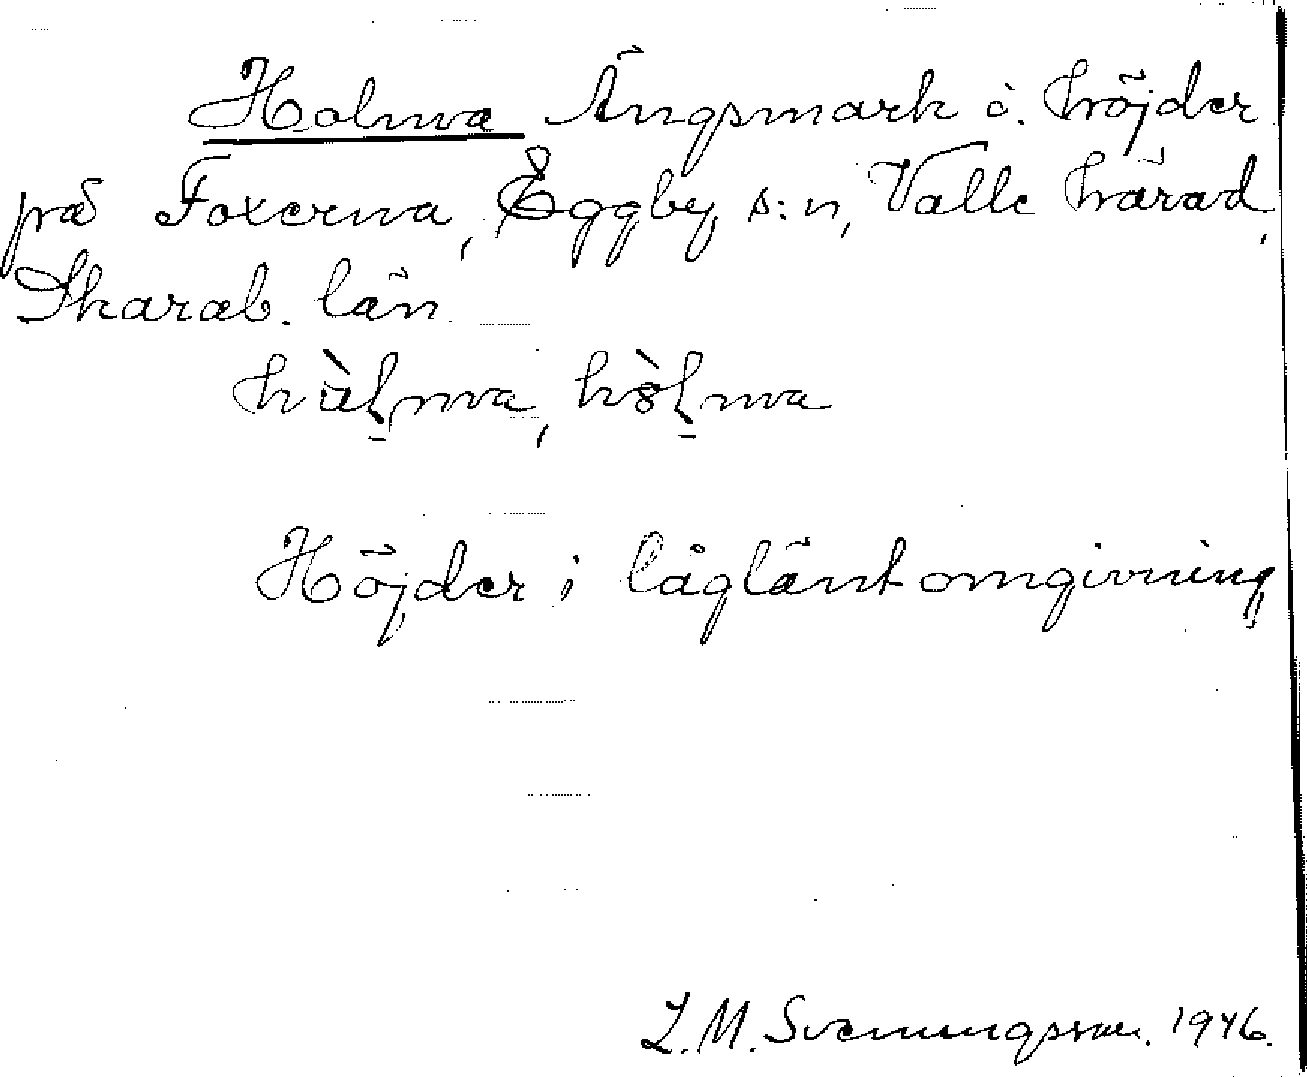 Holma Ängsmark o. höjder
på Foxerna, Eggby s:n, Valle härad,
Skarab. län.

Höjder i låglänt omgivning
L. M. Svenungsson. 1946.